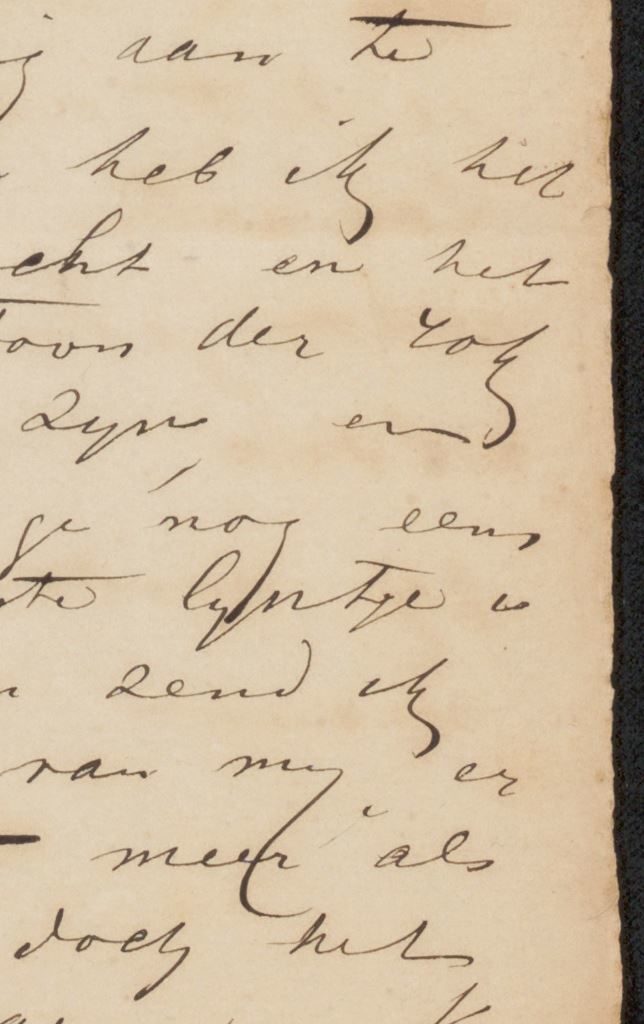 aan te
heb ik het
en het
toon der rok
zyn en
ge nog eens
lyntje is
zend ik
van my er
meer als
doch het